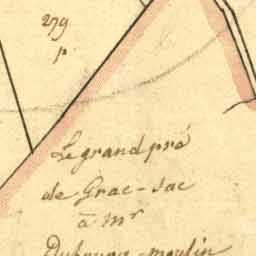 279
p.
Le grand pré
de Grac-sac
à mr
moulin